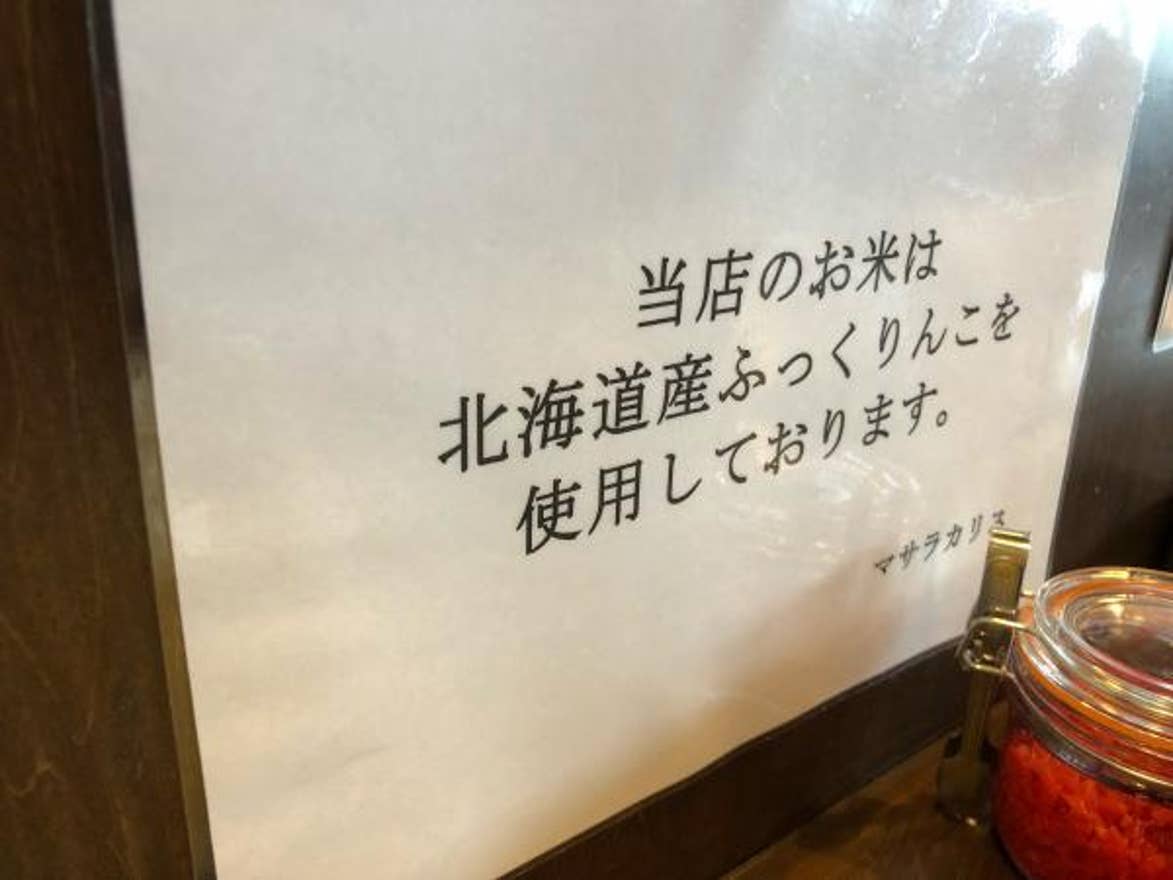 当店のお米は
北海道産ふっくりんこを
使用しております。
マサラカリス